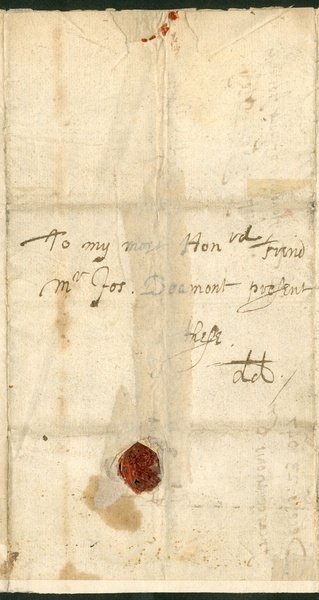 To my most Hon^rd Frind
M^r Jos. Beamont present
these.
dd.